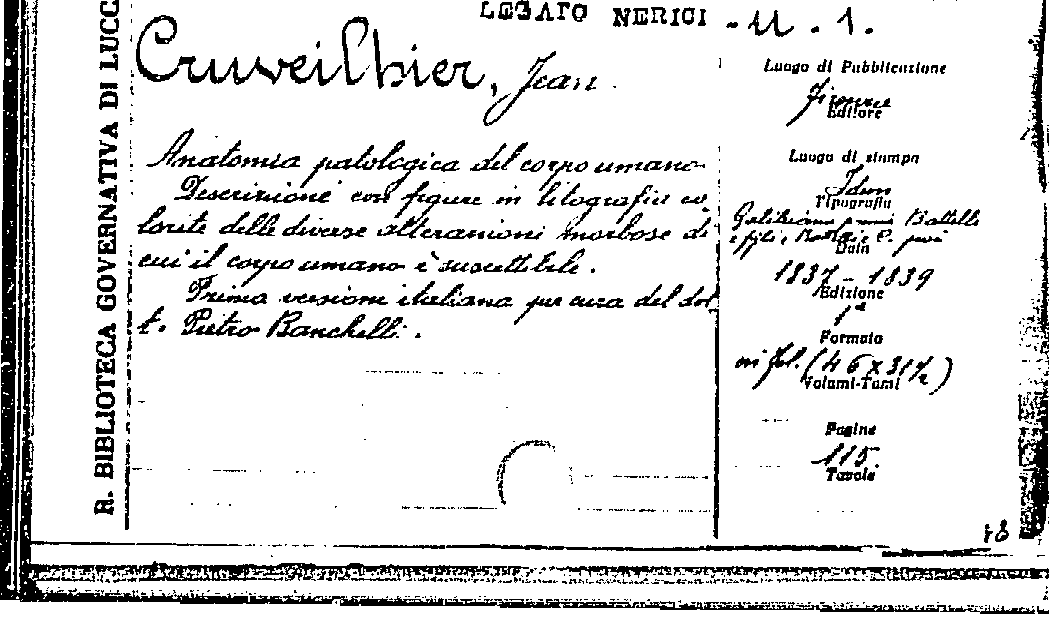 R. BIBLIOTECA GOVERNATIVA DI LUCC
LEGATO NERICI - N. 1.
Cruveilhier, Jean
Anatomia patologica del corpo umano
Descrizione con figure in litografia co-
lorite delle diverse alterazioni morbose di
cui il corpo umano è suscettibile.
Prima versione italiana per cura del dot
t. Pietro Banchelli.
Luogo di Pubblicazione
Firenze
Editore
Luogo di stampa
Idem
Tipografia
Batelli
e figli
Data
1837 - 1839
Edizione
1ª
Formato
in fol. (46 x 31½)
Volumi-Tomi
Pagine
115.
Tavole